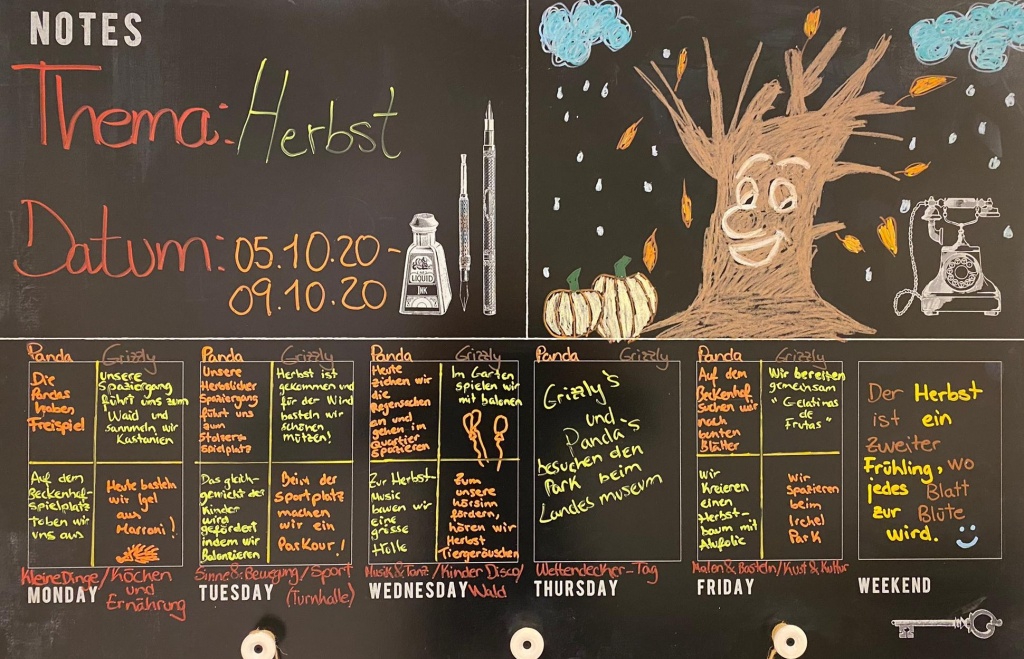 NOTES
Thema: Herbst
Datum: 05.10.20-
09.10.20
LIQUID
INK
Panda Grizzly
Die
Pandas
haben
Freispiel
unsere
Spaziergang
führt uns zum
Wald und
sammeln wir
Kastanien
Auf dem
Beckenhof-
spielplatz
toben wir
uns aus
Heute basteln
wir Igel
aus
Marroni!
Kleine Dinge/Kochen
und
Ernährung
MONDAY
Panda Grizzly
Unsere
Herbslicher
Spaziergang
führt uns
zum
Stolzer-
spielplatz
Herbst ist
gekommen und
für der Wind
basteln wir
schönen
mützen!
Das gleich-
gemicht des
Kinder
wird
gefördert
indem wir
Balanzieren
Beim der
Sportplatz
machen
wir ein
Parkour!
Sinne & Bewegung/Sport
(Turnhalle)
TUESDAY
Panda Grizzly
Heute
ziehen wir
die
Regensachen
an und
gehen im
Quartier
spazieren
Im Garten
spielen wir
mit balonen
Zur Herbst-
Music
bauen wir
eine
grosse
Hülle
Zum
unsere
hörsinn
fördern,
hören wir
Herbst
Tiergeräuschen
Musik & Tanz/Kinder Disco/
Wald
WEDNESDAY
Panda Grizzly
Grizzly's
und
Panda's
besuchen den
Park beim
Landes museum
Weltendecker-Tag
THURSDAY
Panda Grizzly
Auf dem
Beckenhof
suchen wir
nach
bunten
Blätter
Wir bereiten
gemeinsam
"Gelatinas
de
Frutas"
Wir
Kreieren
einen
Herbst-
baum mit
Alufolie
Wir
Spazieren
beim
Irchel
Park
Malen & Basteln/Kust & Kultur
FRIDAY
Der Herbst
ist ein
Zweiter
Frühling, wo
jedes Blatt
zur Blüte
wird.
WEEKEND